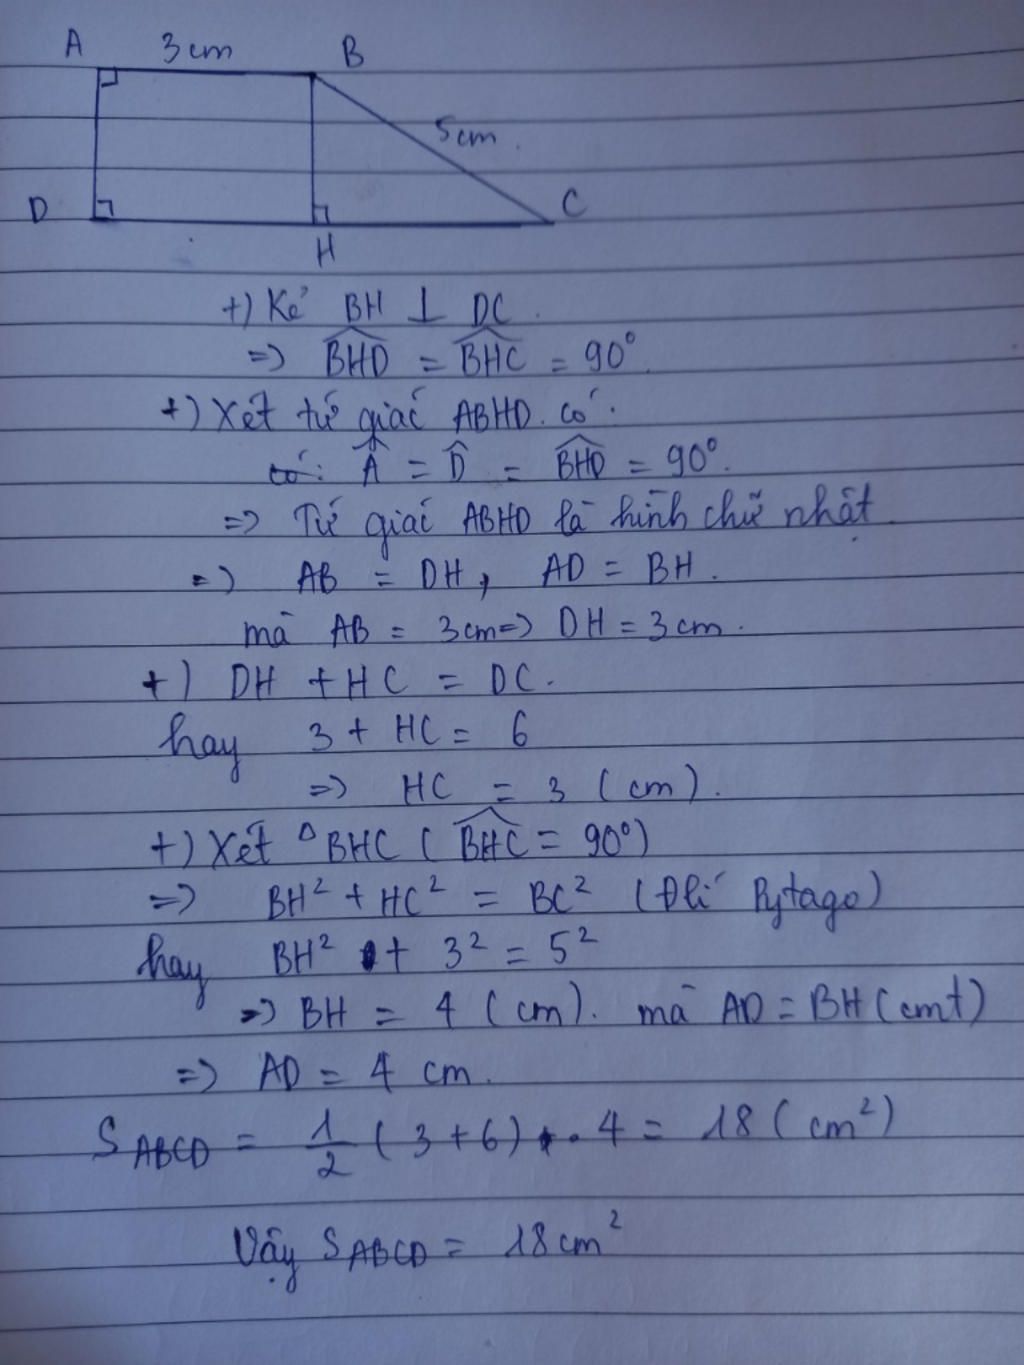 A 3cm B
5cm
D C
H
+) Kẻ BH ⊥ DC.
=> \widehat{BHD} = \widehat{BHC} = 90°.
+) Xét tứ giác ABHD. có:
có: \widehat{A} = \widehat{D} = \widehat{BHD} = 90°.
=> Tứ giác ABHD là hình chữ nhật.
=> AB = DH, AD = BH.
mà AB = 3cm => DH = 3cm.
+) DH + HC = DC.
hay 3 + HC = 6
=> HC = 3 (cm).
+) Xét △BHC ( \widehat{BHC} = 90°)
=> BH² + HC² = BC² (Đlí Pytago)
hay BH² + 3² = 5²
=> BH = 4 (cm). mà AD = BH (cmt)
=> AD = 4 cm.
S_{ABCD} = \frac{1}{2} (3+6) . 4 = 18 (cm²)
Vậy S_{ABCD} = 18cm²